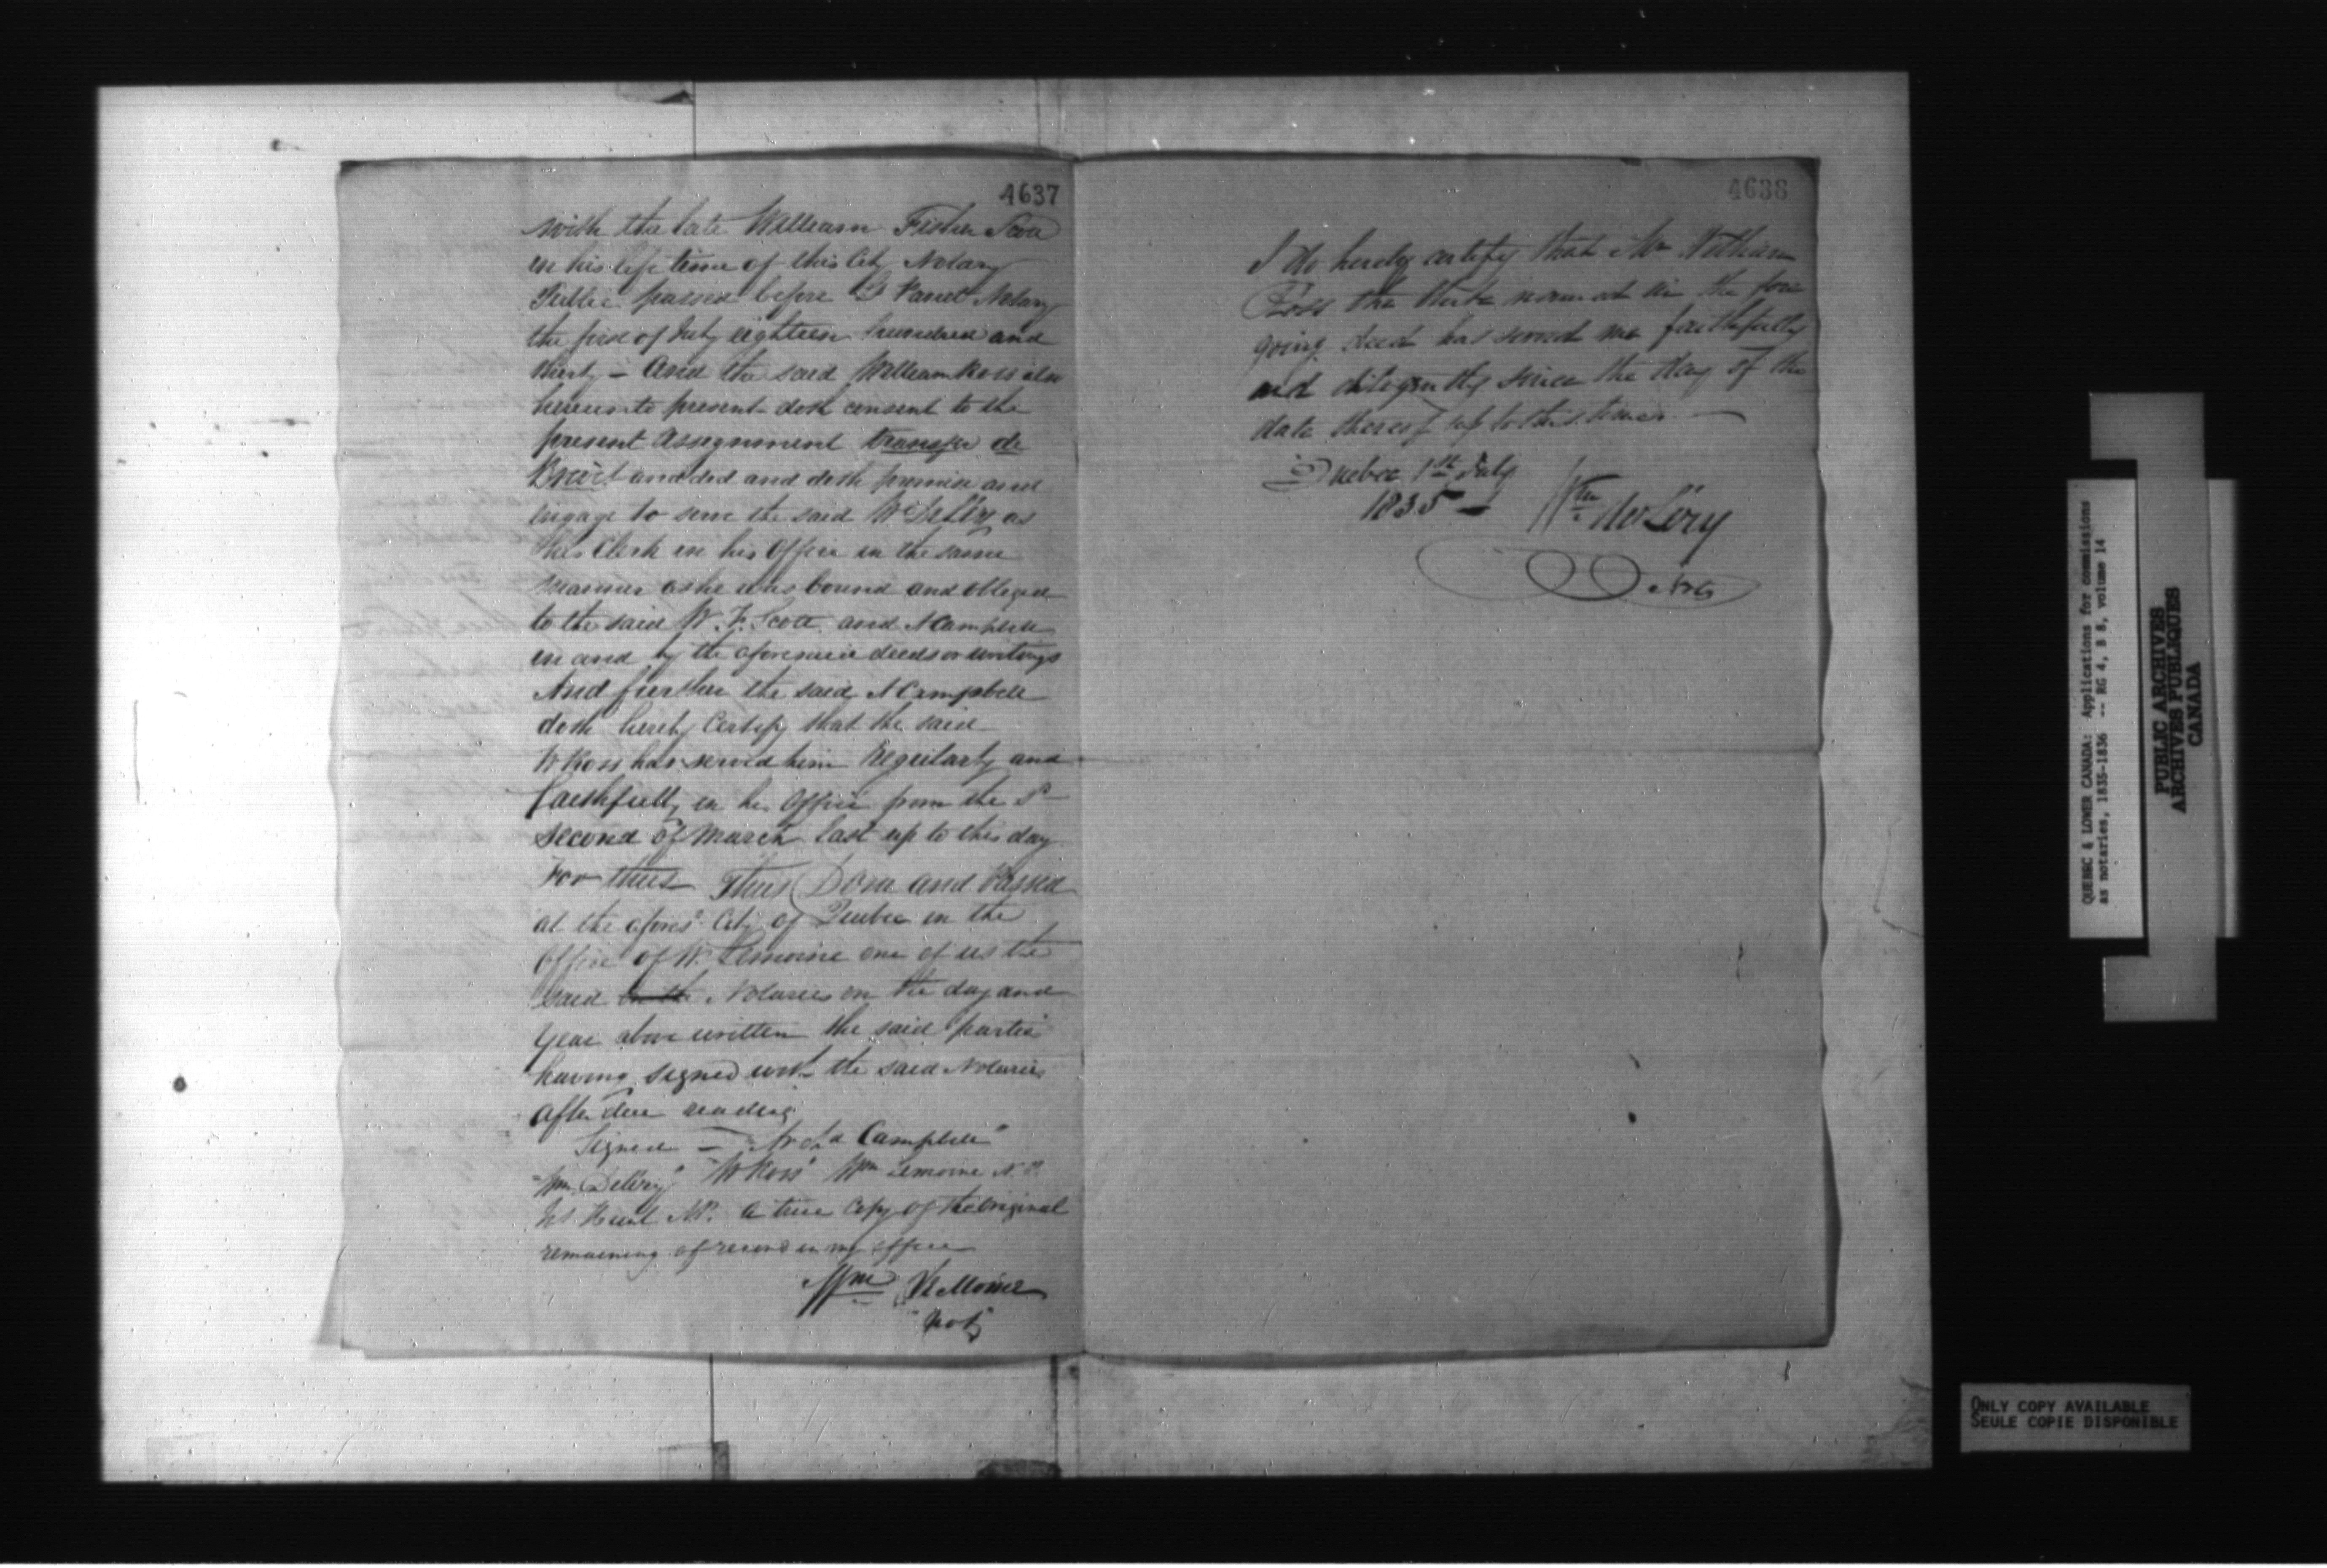 4637
with the late William Fisher Scott
in his life time of this City Notary
Public passed before L Panet Notary
the first of July eighteen hundred and
thirty – And the said William Ross also
hereunto present doth consent to the
present Assignment transfer de
Brevet and did and doth promise and
engage to serve the said Wm DeLéry as
his Clerk in his Office in the same
manner as he was bound and obliged
to the said W. F. Scott and A Campbell
in and by the aforesaid deeds or writings
And further the said A Campbell
doth hereby Certify that the said
W Ross has served him Regularly and
faithfully in his Office from the sd
second of March last up to this day
For thus Thus Done and Passed
at the afores'd City of Quebec in the
Office of W. Lemoine one of us the
said in the Notaries on the day and
year above written the said parties
having signed with the said Notaries
after due reading
Signed – "Archd Campbell"
"Wm DeLéry" "W Ross" Wm Lemoine N.P.
Hunt NP. A true Copy of the Original
remaining of record in my office
Wm LeMoine
Noty
4638
I do hereby certify that Mr William
Ross the clerk named in the fore
going deed has served me faithfully
and diligently since the day of the
date thereof up to this time. —
Quebec 1st July
1835 –
Wm De Léry
Noty
QUEBEC & LOWER CANADA: Applications for commissions
as notaries, 1835-1836 -- RG 4, B 8, volume 14
PUBLIC ARCHIVES
ARCHIVES PUBLIQUES
CANADA
ONLY COPY AVAILABLE
SEULE COPIE DISPONIBLE